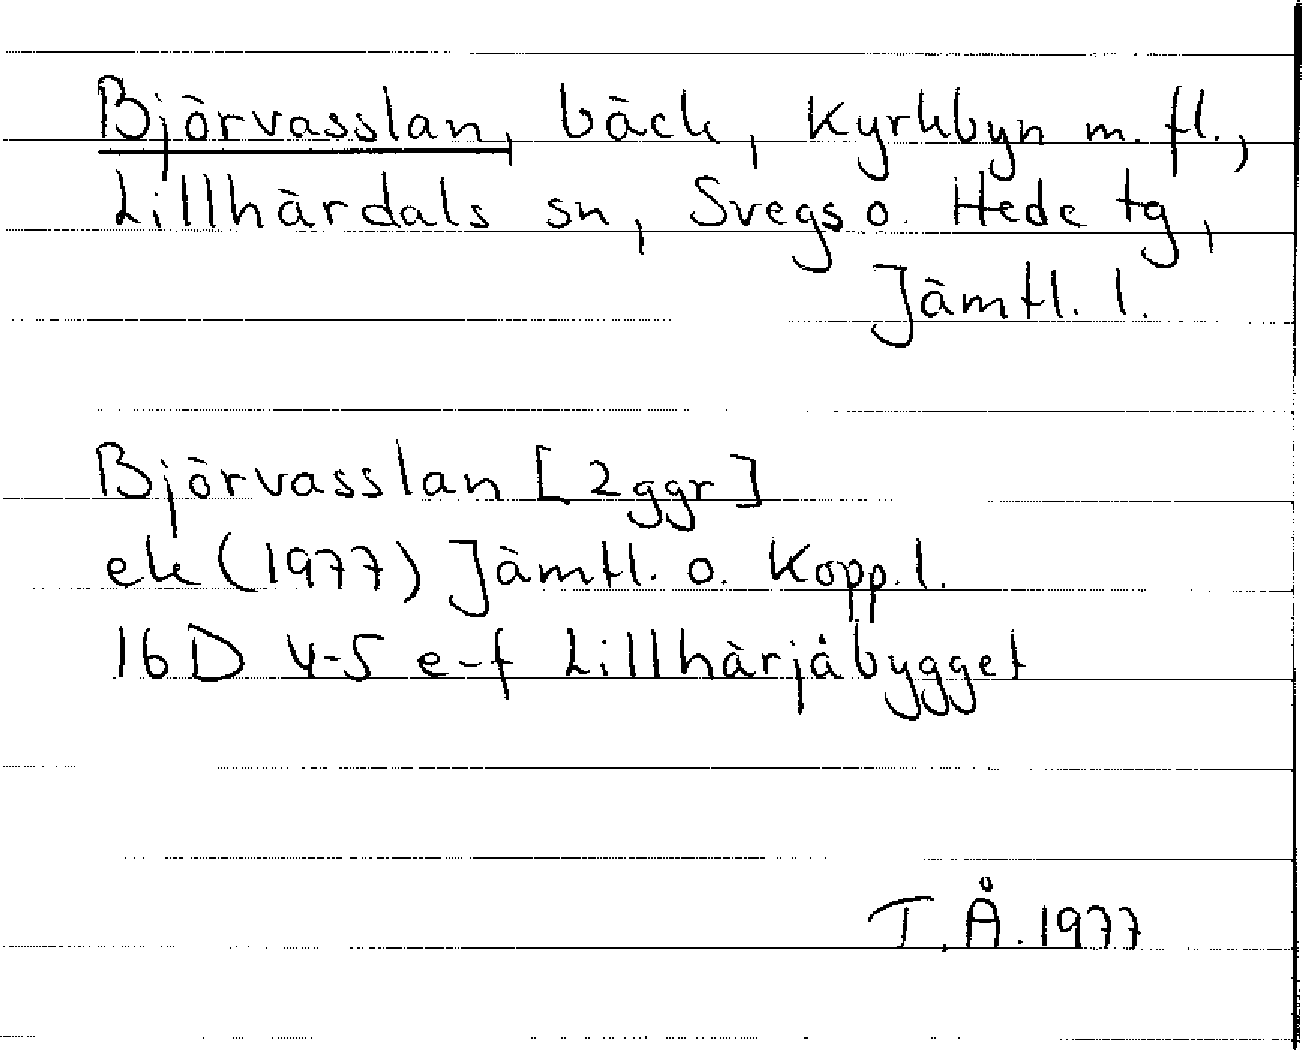 Björvasslan, bäck, Kyrkbyn m. fl.,
Lillhärdals sn, Svegs o. Hede tg,
Jämtl. l.
Björvasslan [2ggr]
ek (1977) Jämtl. o. Kopp. l.
16D 4-5 e-f Lillhärjåbygget
T.Å. 1977